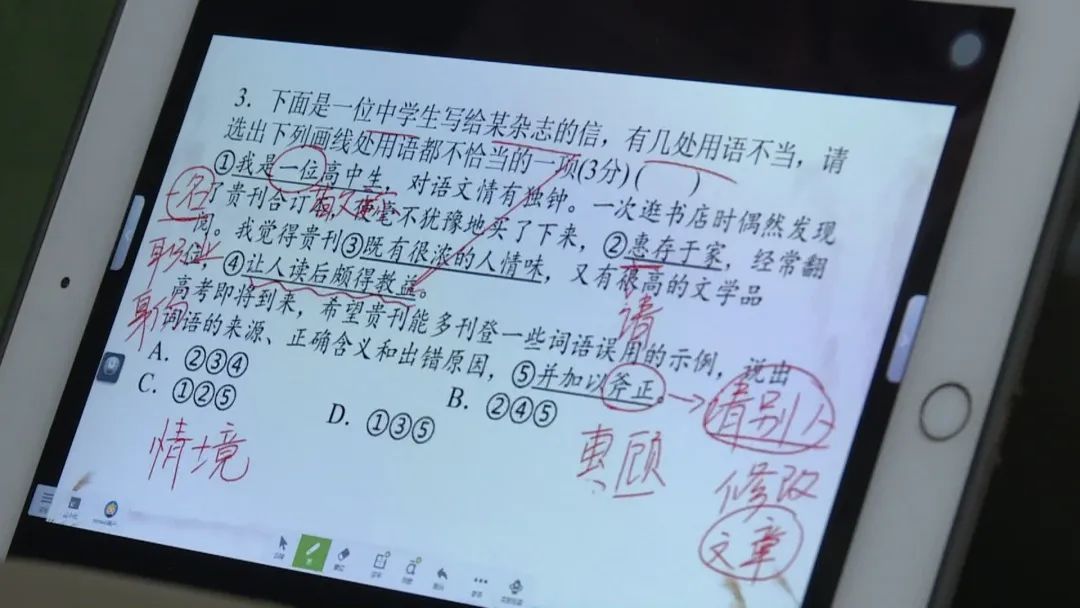 3. 下面是一位中学生写给某杂志的信，有几处用语不当，请
选出下列画线处用语都不恰当的一项(3分)(　　)
①我是一位高中生，对语文情有独钟。一次逛书店时偶然发现
一名
了贵刊合订本，便毫不犹豫地买了下来，②惠存于家，经常翻
阅。我觉得贵刊③既有很浓的人情味，又有很高的文学品
职业
位，④让人读后颇得教益。
身份
请
高考即将到来，希望贵刊能多刊登一些词语误用的示例，说出
词语的来源、正确含义和出错原因，⑤并加以斧正。
请别人
修改
文章
A. ②③④
B. ②④⑤
C. ①②⑤
D. ①③⑤
惠顾
情境